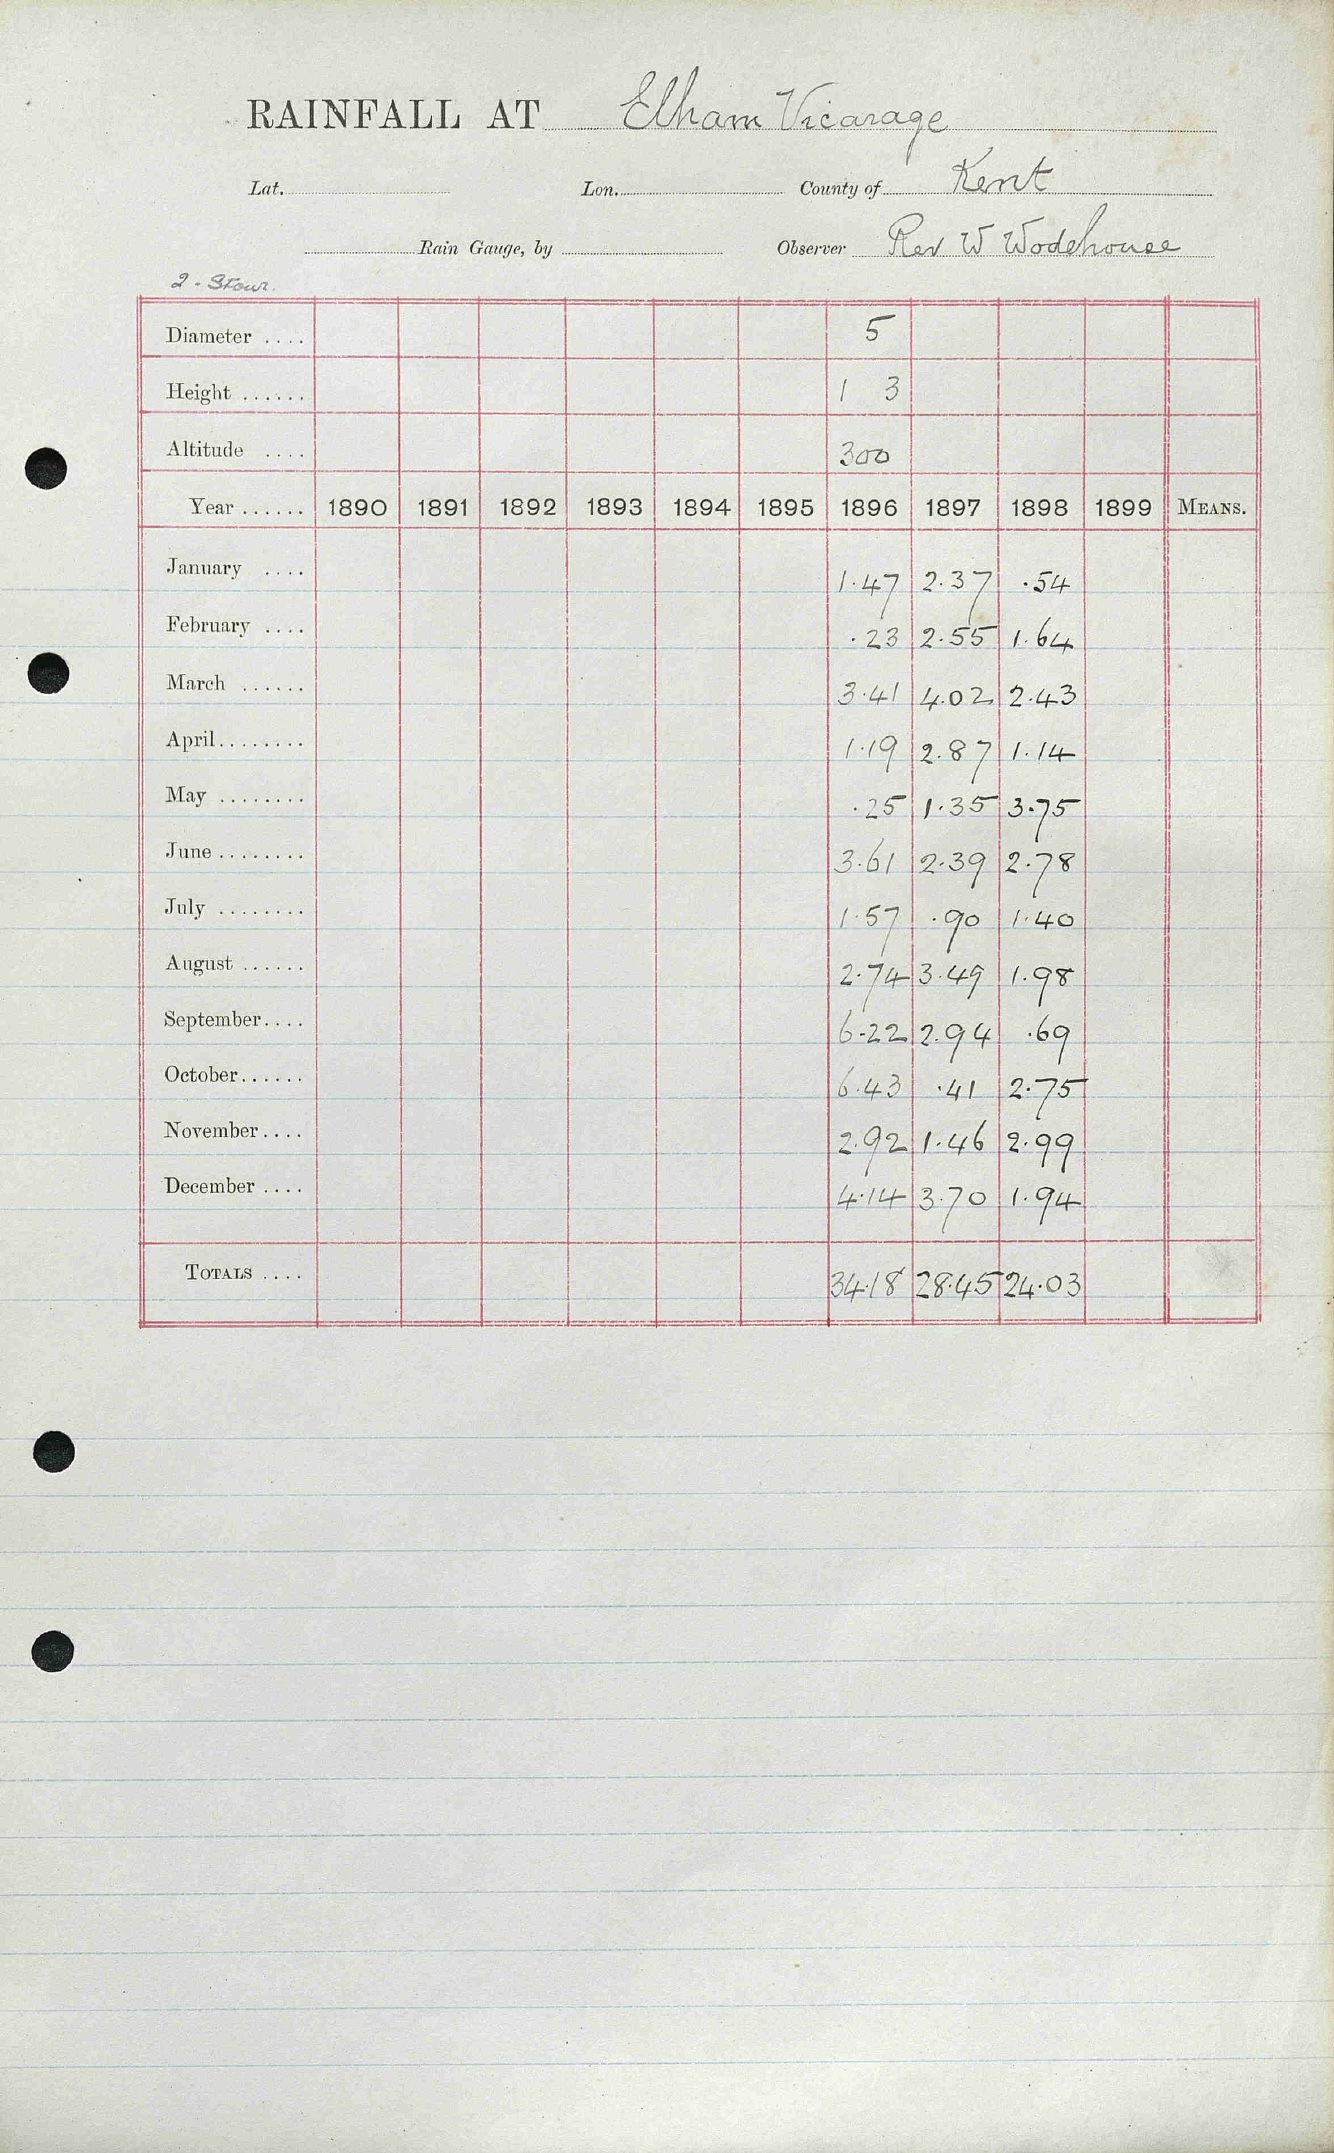 RAINFALL AT Elham Vicarage
Lat. Lon. County of Kent
Rain Gauge, by Observer Rev W Wodehouse
2 - Stour.
Diameter .... 5
Height ...... 1 3
Altitude .... 300
Year ...... 1890 1891 1892 1893 1894 1895 1896 1897 1898 1899 MEANS.
January .... 1.47 2.37 .54
February .... .23 2.55 1.64
March ...... 3.41 4.02 2.43
April........ 1.19 2.87 1.14
May ........ .25 1.35 3.75
June ........ 3.61 2.39 2.78
July ........ 1.57 .90 1.40
August ...... 2.74 3.49 1.98
September.... 6.22 2.94 .69
October...... 6.43 .41 2.75
November.... 2.92 1.46 2.99
December .... 4.14 3.70 1.94
TOTALS .... 34.18 28.45 24.03